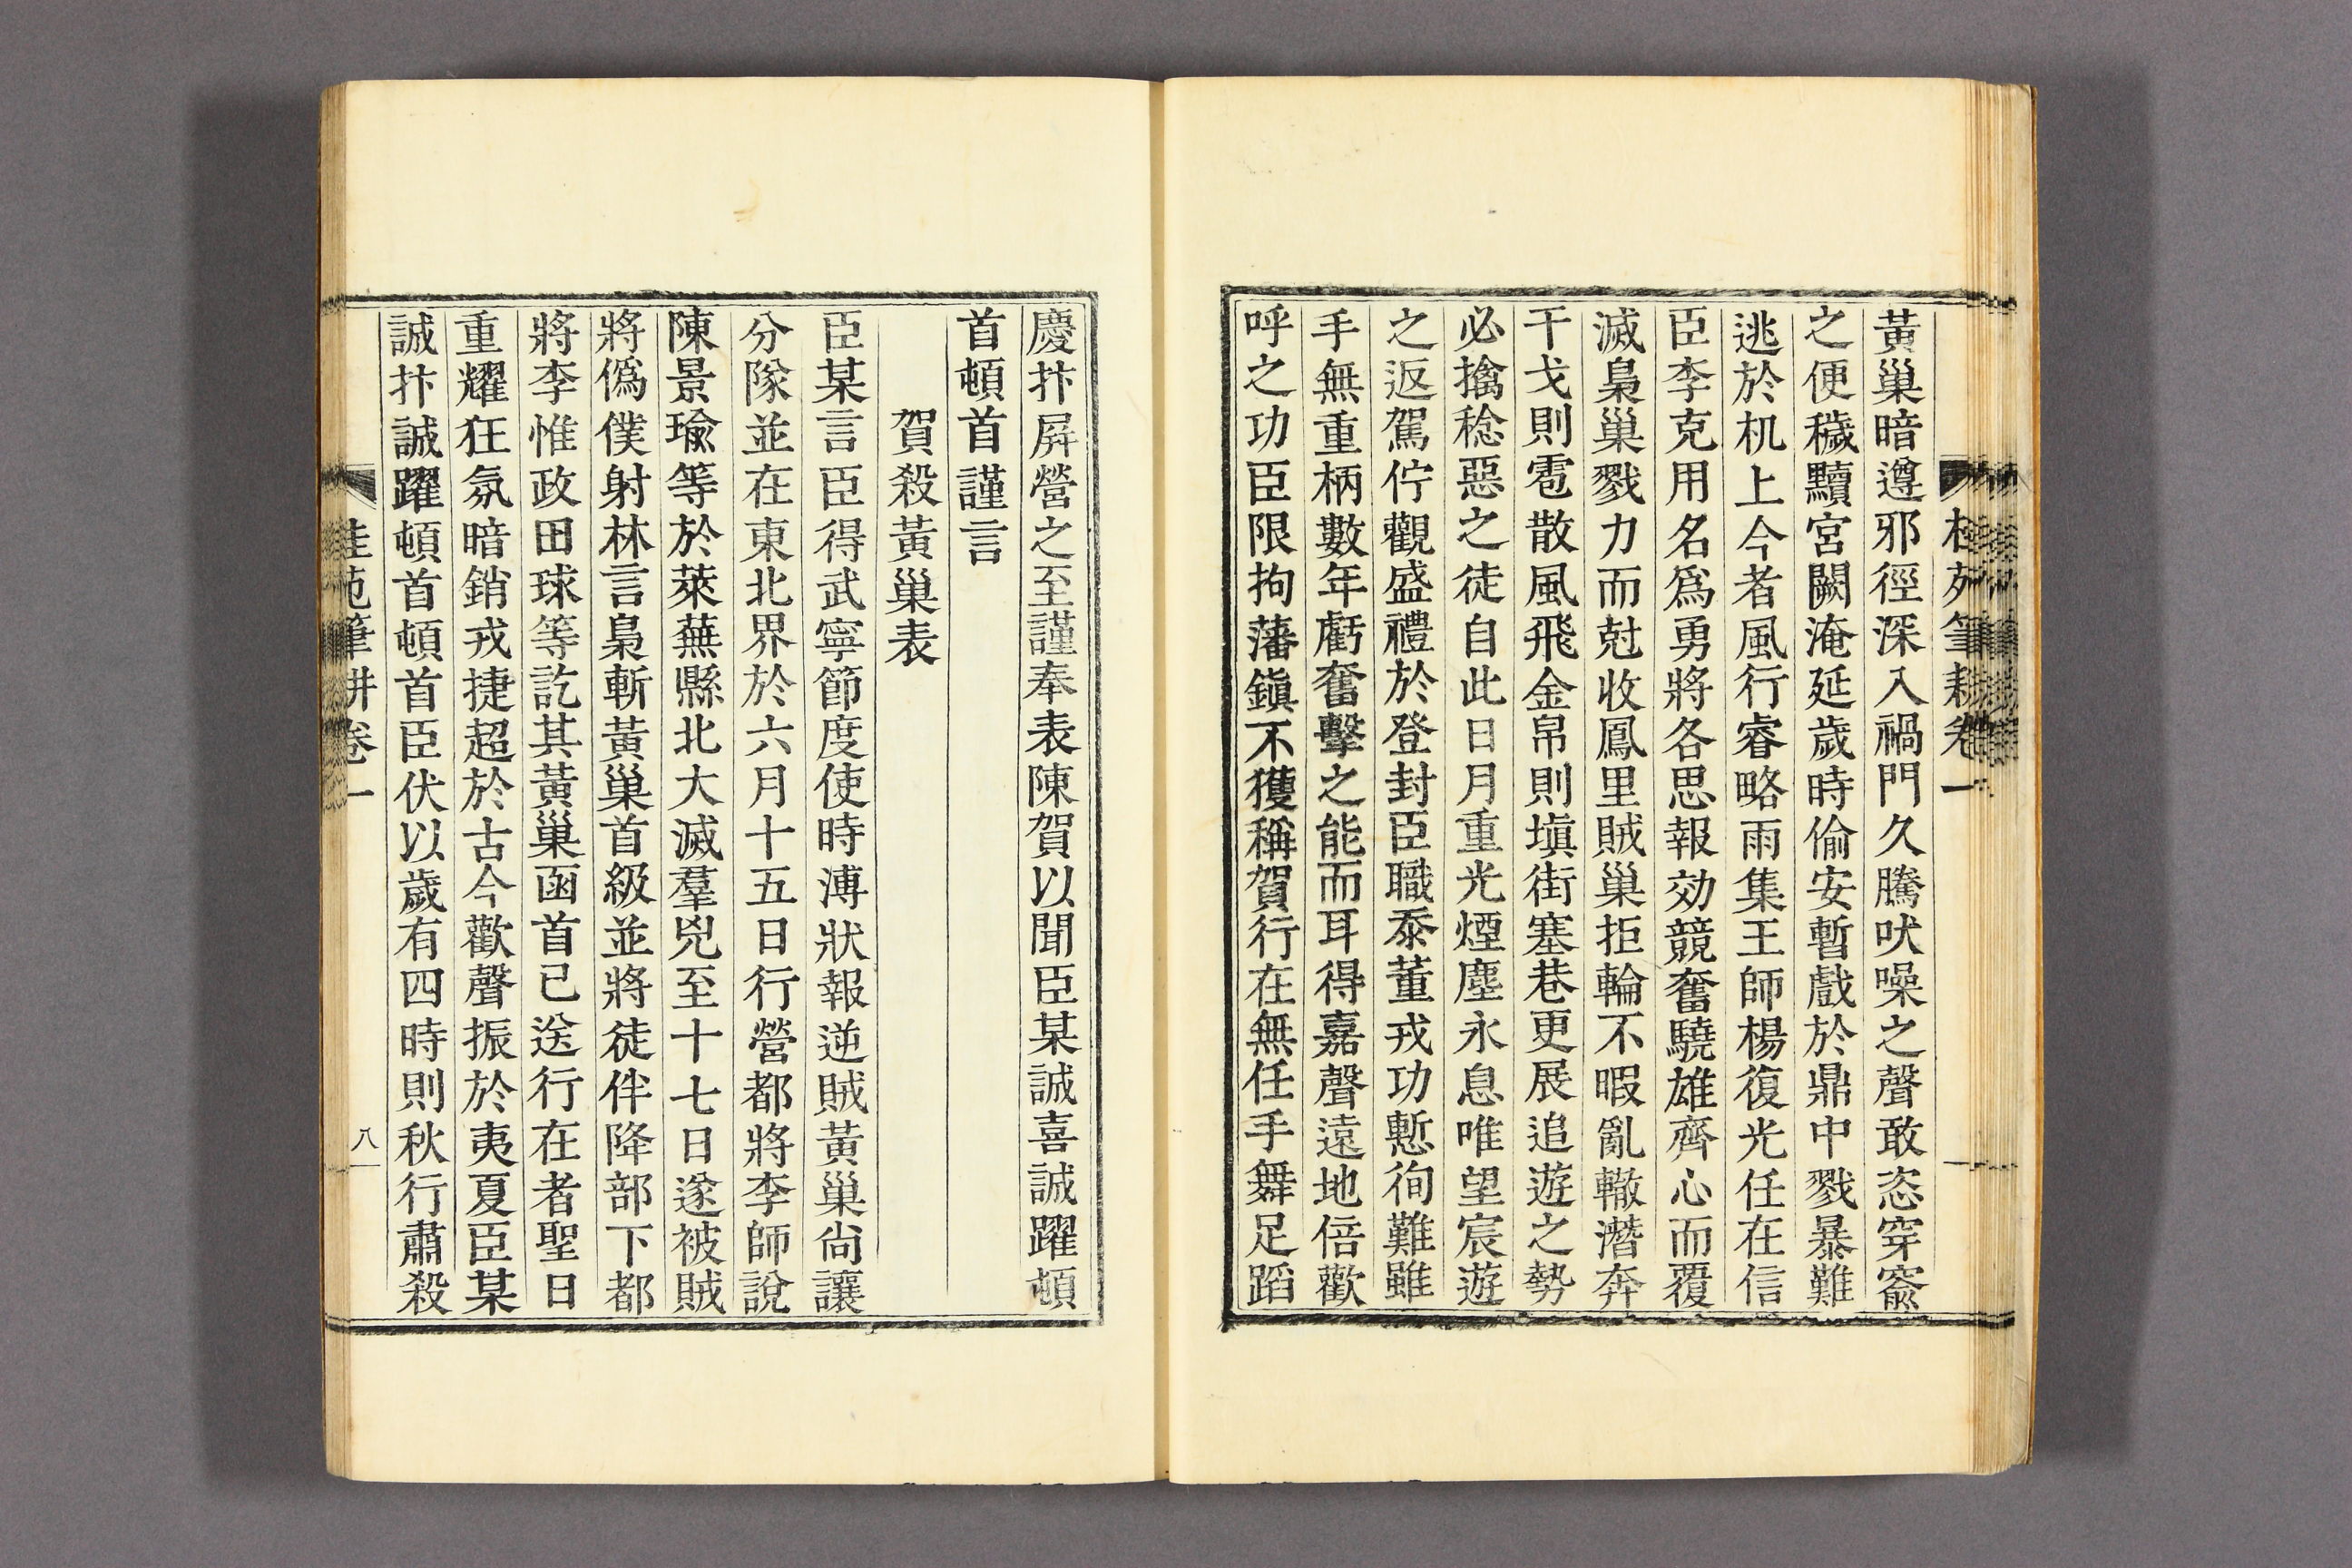 黃巢暗遵邪徑深入禍門久騰吠噪之聲敢恣穿窬
之便穢黷宮闕淹延歲時偷安暫戲於鼎中戮暴難
逃於机上今者風行睿略雨集王師楊復光任在信
臣李克用名爲勇將各思報効競奮驍雄齊心而覆
滅梟巢戮力而尅收鳳里賊巢拒輪不暇亂轍潛奔
干戈則雹散風飛金帛則塡街塞巷更展追遊之勢
必擒稔惡之徒自此日月重光煙塵永息唯望宸遊
之返駕佇觀盛禮於登封臣職忝董戎功慙徇難雖
手無重柄數年虧奮擊之能而耳得嘉聲遠地倍歡
呼之功臣限拘藩鎭不獲稱賀行在無任手舞足蹈
慶抃屛營之至謹奉表陳賀以聞臣某誠喜誠躍頓
首頓首謹言
賀殺黃巢表
臣某言臣得武寧節度使時溥狀報逆賊黃巢尙讓
分隊並在東北界於六月十五日行營都將李師說
陳景瑜等於萊蕪縣北大滅羣兇至十七日遂被賊
將僞僕射林言梟斬黃巢首級並將徒伴降部下都
將李惟政田球等訖其黃巢函首已送行在者聖日
重耀狂氛暗銷戎捷超於古今歡聲振於夷夏臣某
誠抃誠躍頓首頓首臣伏以歲有四時則秋行肅殺
桂苑筆耕卷一
八